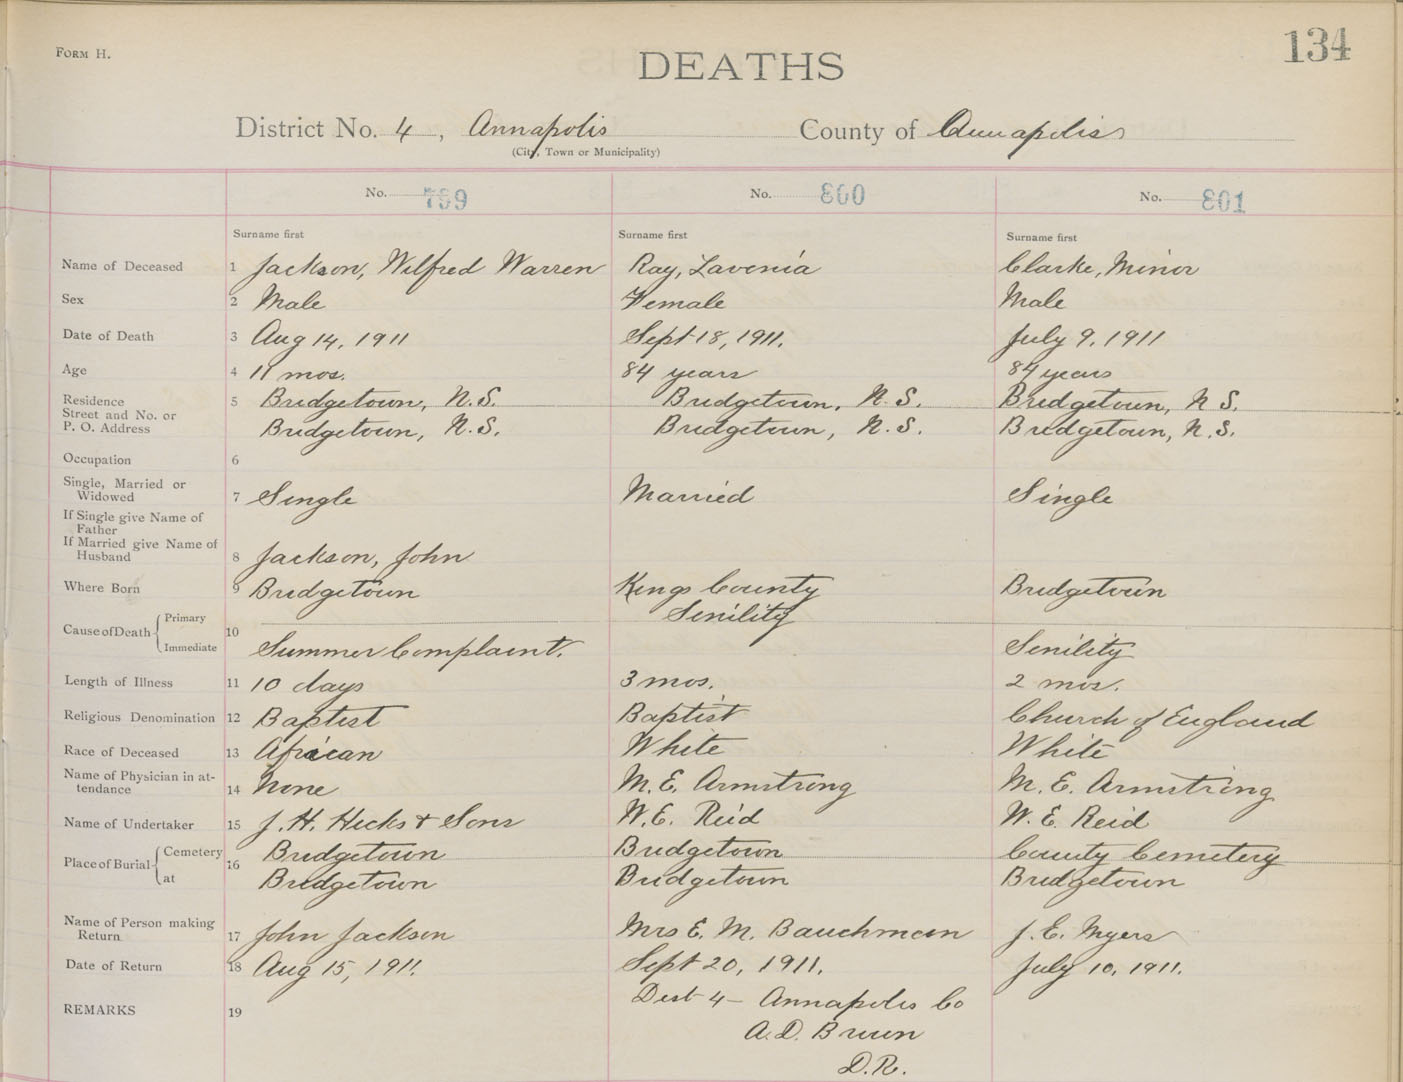 FORM H.
134
DEATHS
District No. 4, Annapolis County of Annapolis
(City, Town or Municipality)
No. 799 No. 800 No. 801
Surname first Surname first Surname first
Name of Deceased 1 Jackson, Wilfred Warren Ray, Lavenia Clarke, Minor
Sex 2 Male Female Male
Date of Death 3 Aug 14, 1911 Sept 18, 1911. July 9, 1911
Age 4 11 mos. 84 years 84 years
Residence 5 Bridgetown, N.S. Bridgetown, N.S. Bridgetown, N S.
Street and No. or
P. O. Address Bridgetown, N.S. Bridgetown, N.S. Bridgetown, N.S.
Occupation 6
Single, Married or
Widowed 7 Single Married Single
If Single give Name of
Father
If Married give Name of
Husband 8 Jackson, John
Where Born 9 Bridgetown Kings County Bridgetown
Cause of Death Primary 10 Senility
Immediate Summer Complaint. Senility
Length of Illness 11 10 days 3 mos. 2 mos.
Religious Denomination 12 Baptist Baptist Church of England
Race of Deceased 13 African White White
Name of Physician in at-
tendance 14 None M. E. Armstrong M. E. Armstrong
Name of Undertaker 15 J. H. Hicks & Sons W. E. Reid W. E. Reid
Place of Burial Cemetery 16 Bridgetown Bridgetown County Cemetery
at Bridgetown Bridgetown Bridgetown
Name of Person making
Return 17 John Jackson Mrs E. M. Bauchman J. E. Myers
Date of Return 18 Aug 15, 1911. Sept 20, 1911. July 10, 1911.
REMARKS 19 Dist 4 – Annapolis Co
A. D. Brown
D. R.